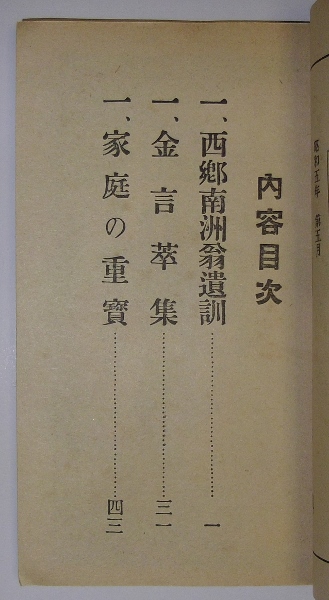 內容目次
一、西鄕南洲翁遺訓……………………一
一、金言萃集……………………三一
一、家庭の重寶……………………四三